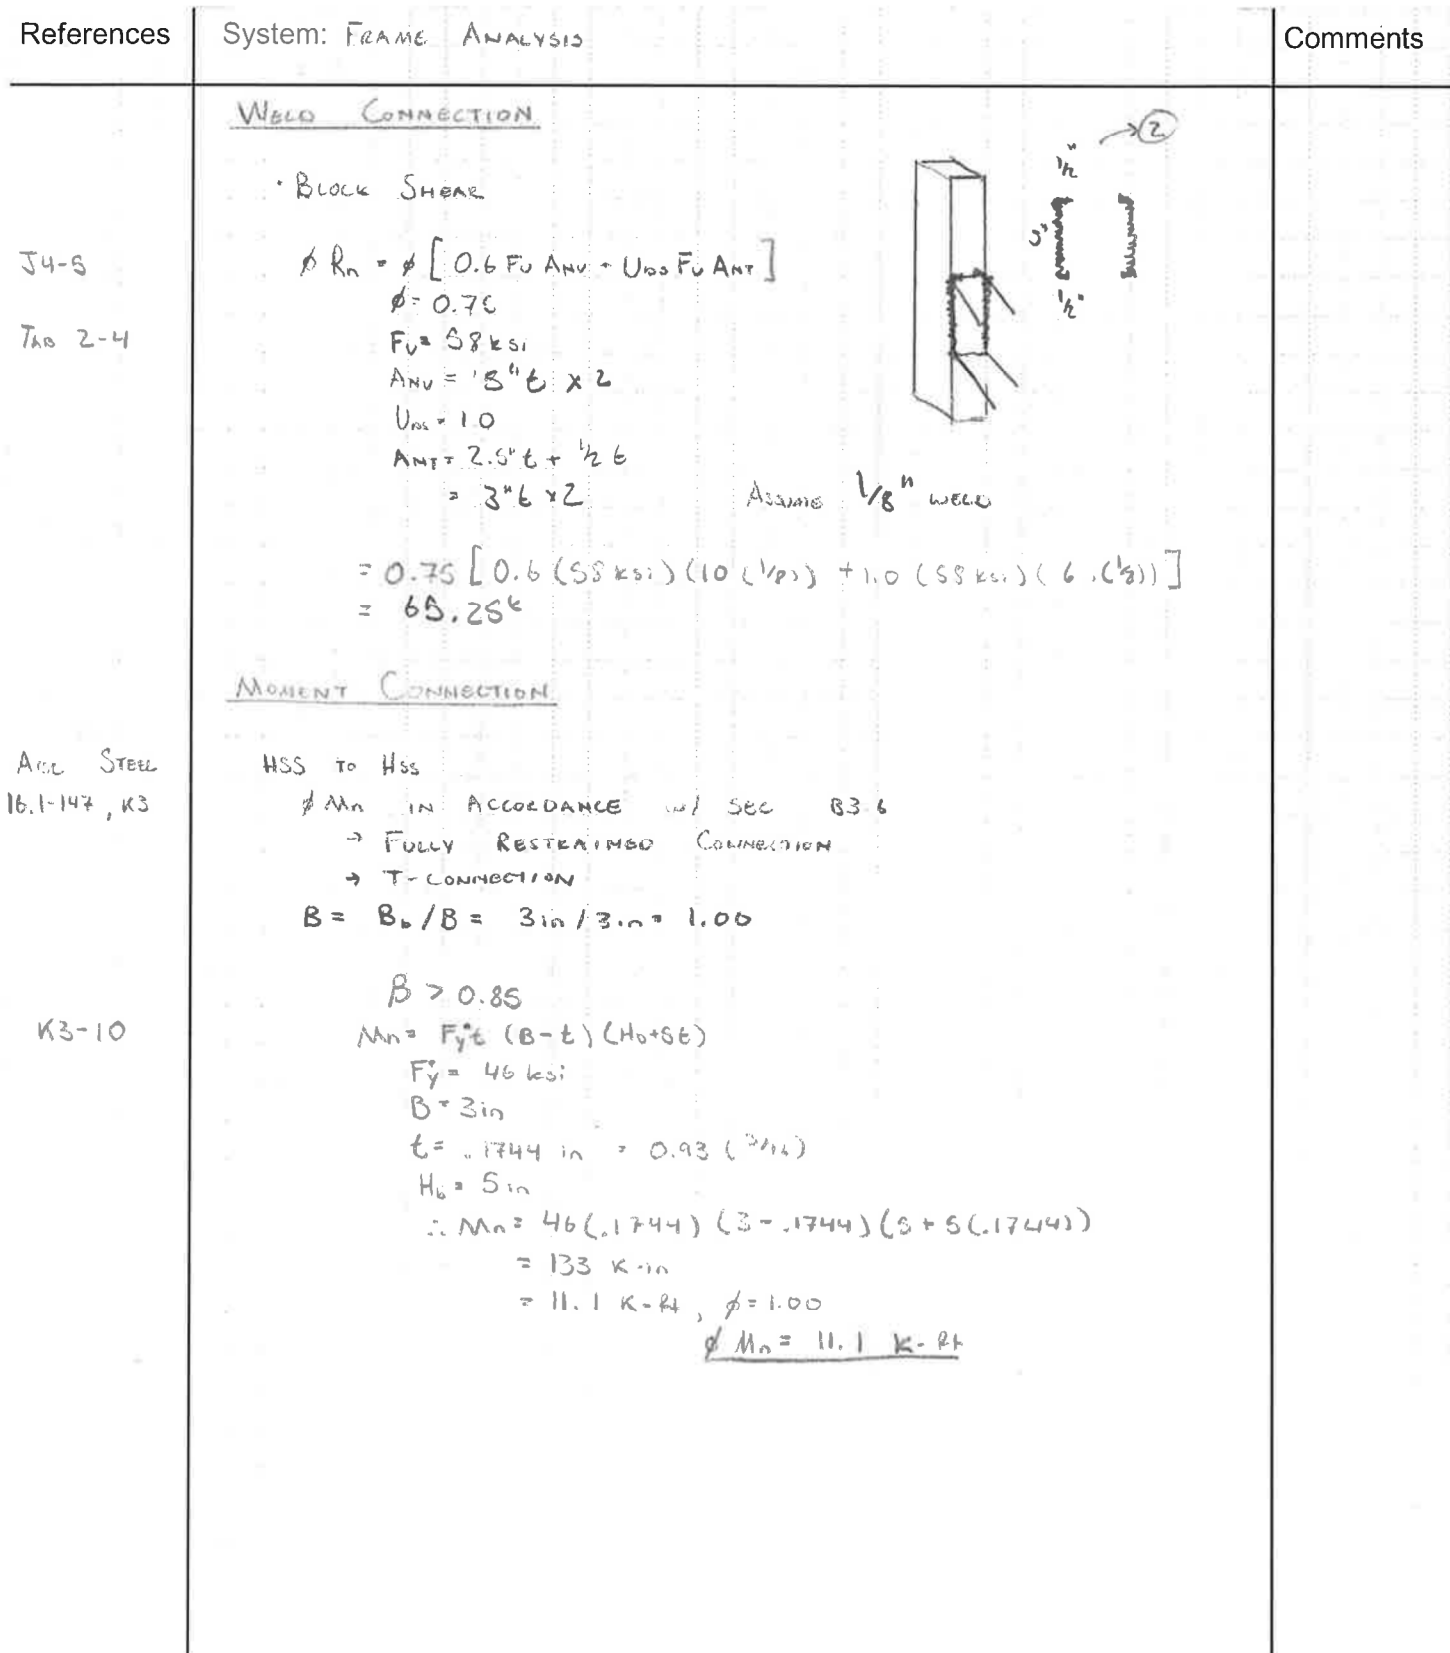 References
System: FRAME ANALYSIS
Comments
WELD CONNECTION
→ 2
1/2"
5"
1/2"
· BLOCK SHEAR
J4-5
ϕ Rn = ϕ [ 0.6 Fu ANV + Ubs Fu ANT ]
ϕ = 0.75
TAB 2-4
Fu = 58 ksi
ANV = 5" t x 2
Ubs = 1.0
ANT = 2.5" t + 1/2 t
= 3" t x 2
ASSUME 1/8" WELD
= 0.75 [ 0.6 (58 ksi) (10 (1/8)) + 1.0 (58 ksi) ( 6 (1/8)) ]
= 65.25k
MOMENT CONNECTION
AISC STEEL
16.1-147, K3
HSS TO HSS
ϕ Mn IN ACCORDANCE w/ SEC B3.6
→ FULLY RESTRAINED CONNECTION
→ T-CONNECTION
B = Bb / B = 3in / 3in = 1.00
β > 0.85
K3-10
Mn = Fy*t (B-t) (Hb+5t)
Fy* = 46 ksi
B = 3in
t = .1744 in = 0.93 (3/16)
Hb = 5 in
∴ Mn = 46(.1744) (3-.1744) (5 + 5(.1744))
= 133 K-in
= 11.1 K-ft, ϕ = 1.00
ϕ Mn = 11.1 K-ft